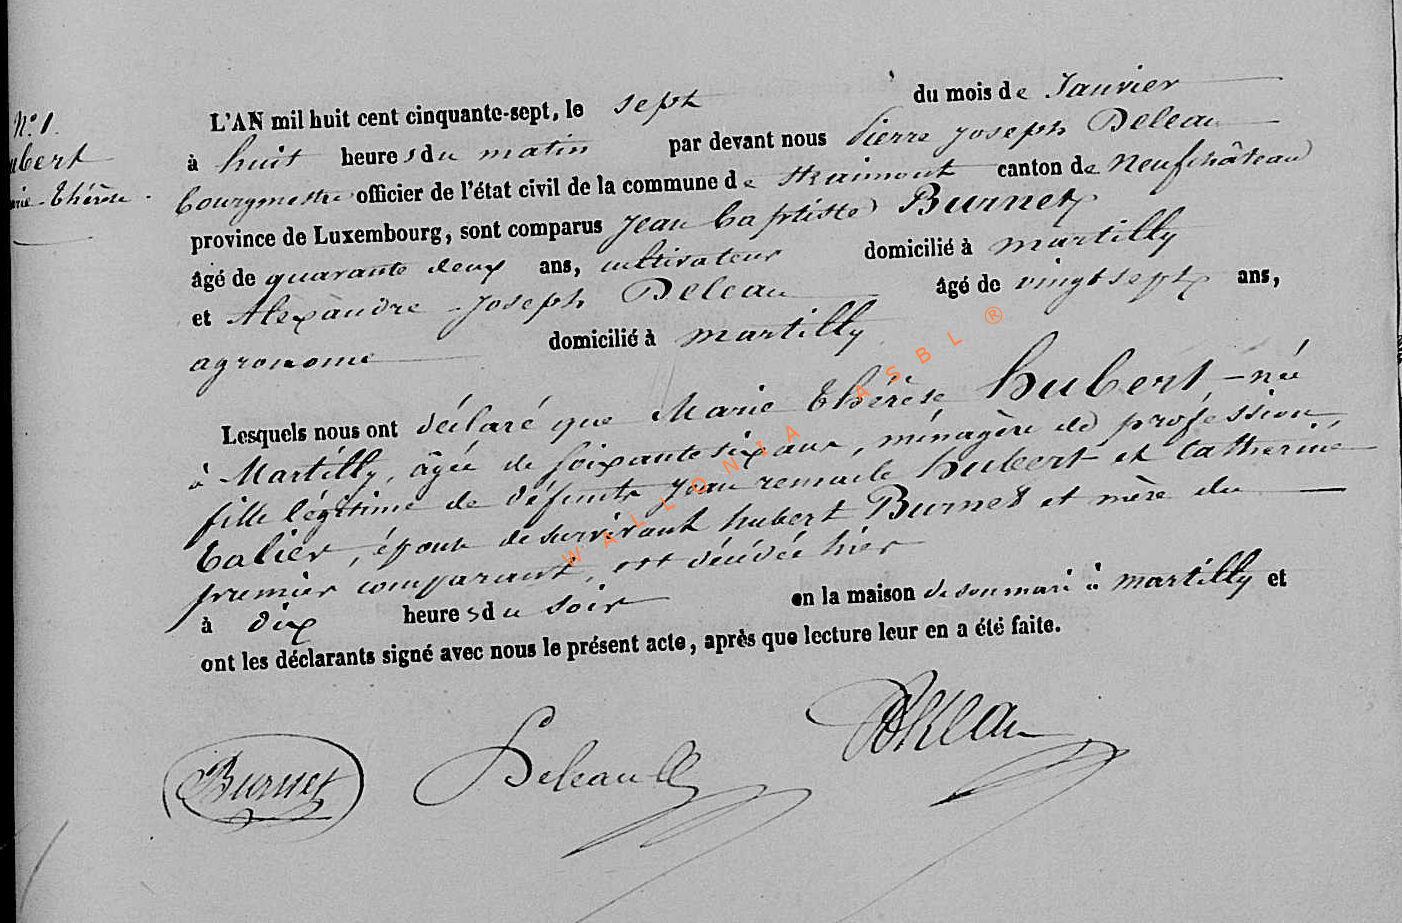 N° 1.
ubert
rie-Thérèse.
L'AN mil huit cent cinquante-sept, le sept du mois de Janvier
à huit heures du matin par devant nous Pierre Joseph Deleau
bourgmestre officier de l'état civil de la commune de Straimont canton de Neufchâteau
province de Luxembourg, sont comparus Jean baptiste Burnet
âgé de quarante deux ans, cultivateur domicilié à martilly
et Alexandre Joseph Deleau âgé de vingt sept ans,
agronome domicilié à martilly
Lesquels nous ont déclaré que Marie Thérèse hubert, née
à Martilly, âgée de soixante six ans, ménagère de profession
fille légitime de défunts Jean remacle hubert et Catherine
Talier, épouse de survivant hubert Burnet et mère du
premier comparant, est décédée hier
à dix heures du soir en la maison de son mari à martilly et
ont les déclarants signé avec nous le présent acte, après que lecture leur en a été faite.
Burnet Deleau Deleau
WALLONIA ASBL ®